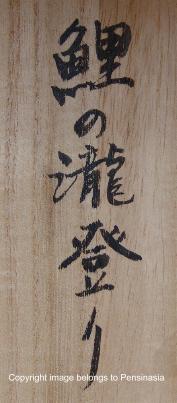 鯉の瀧登り
Copyright image belongs to Pensinasia